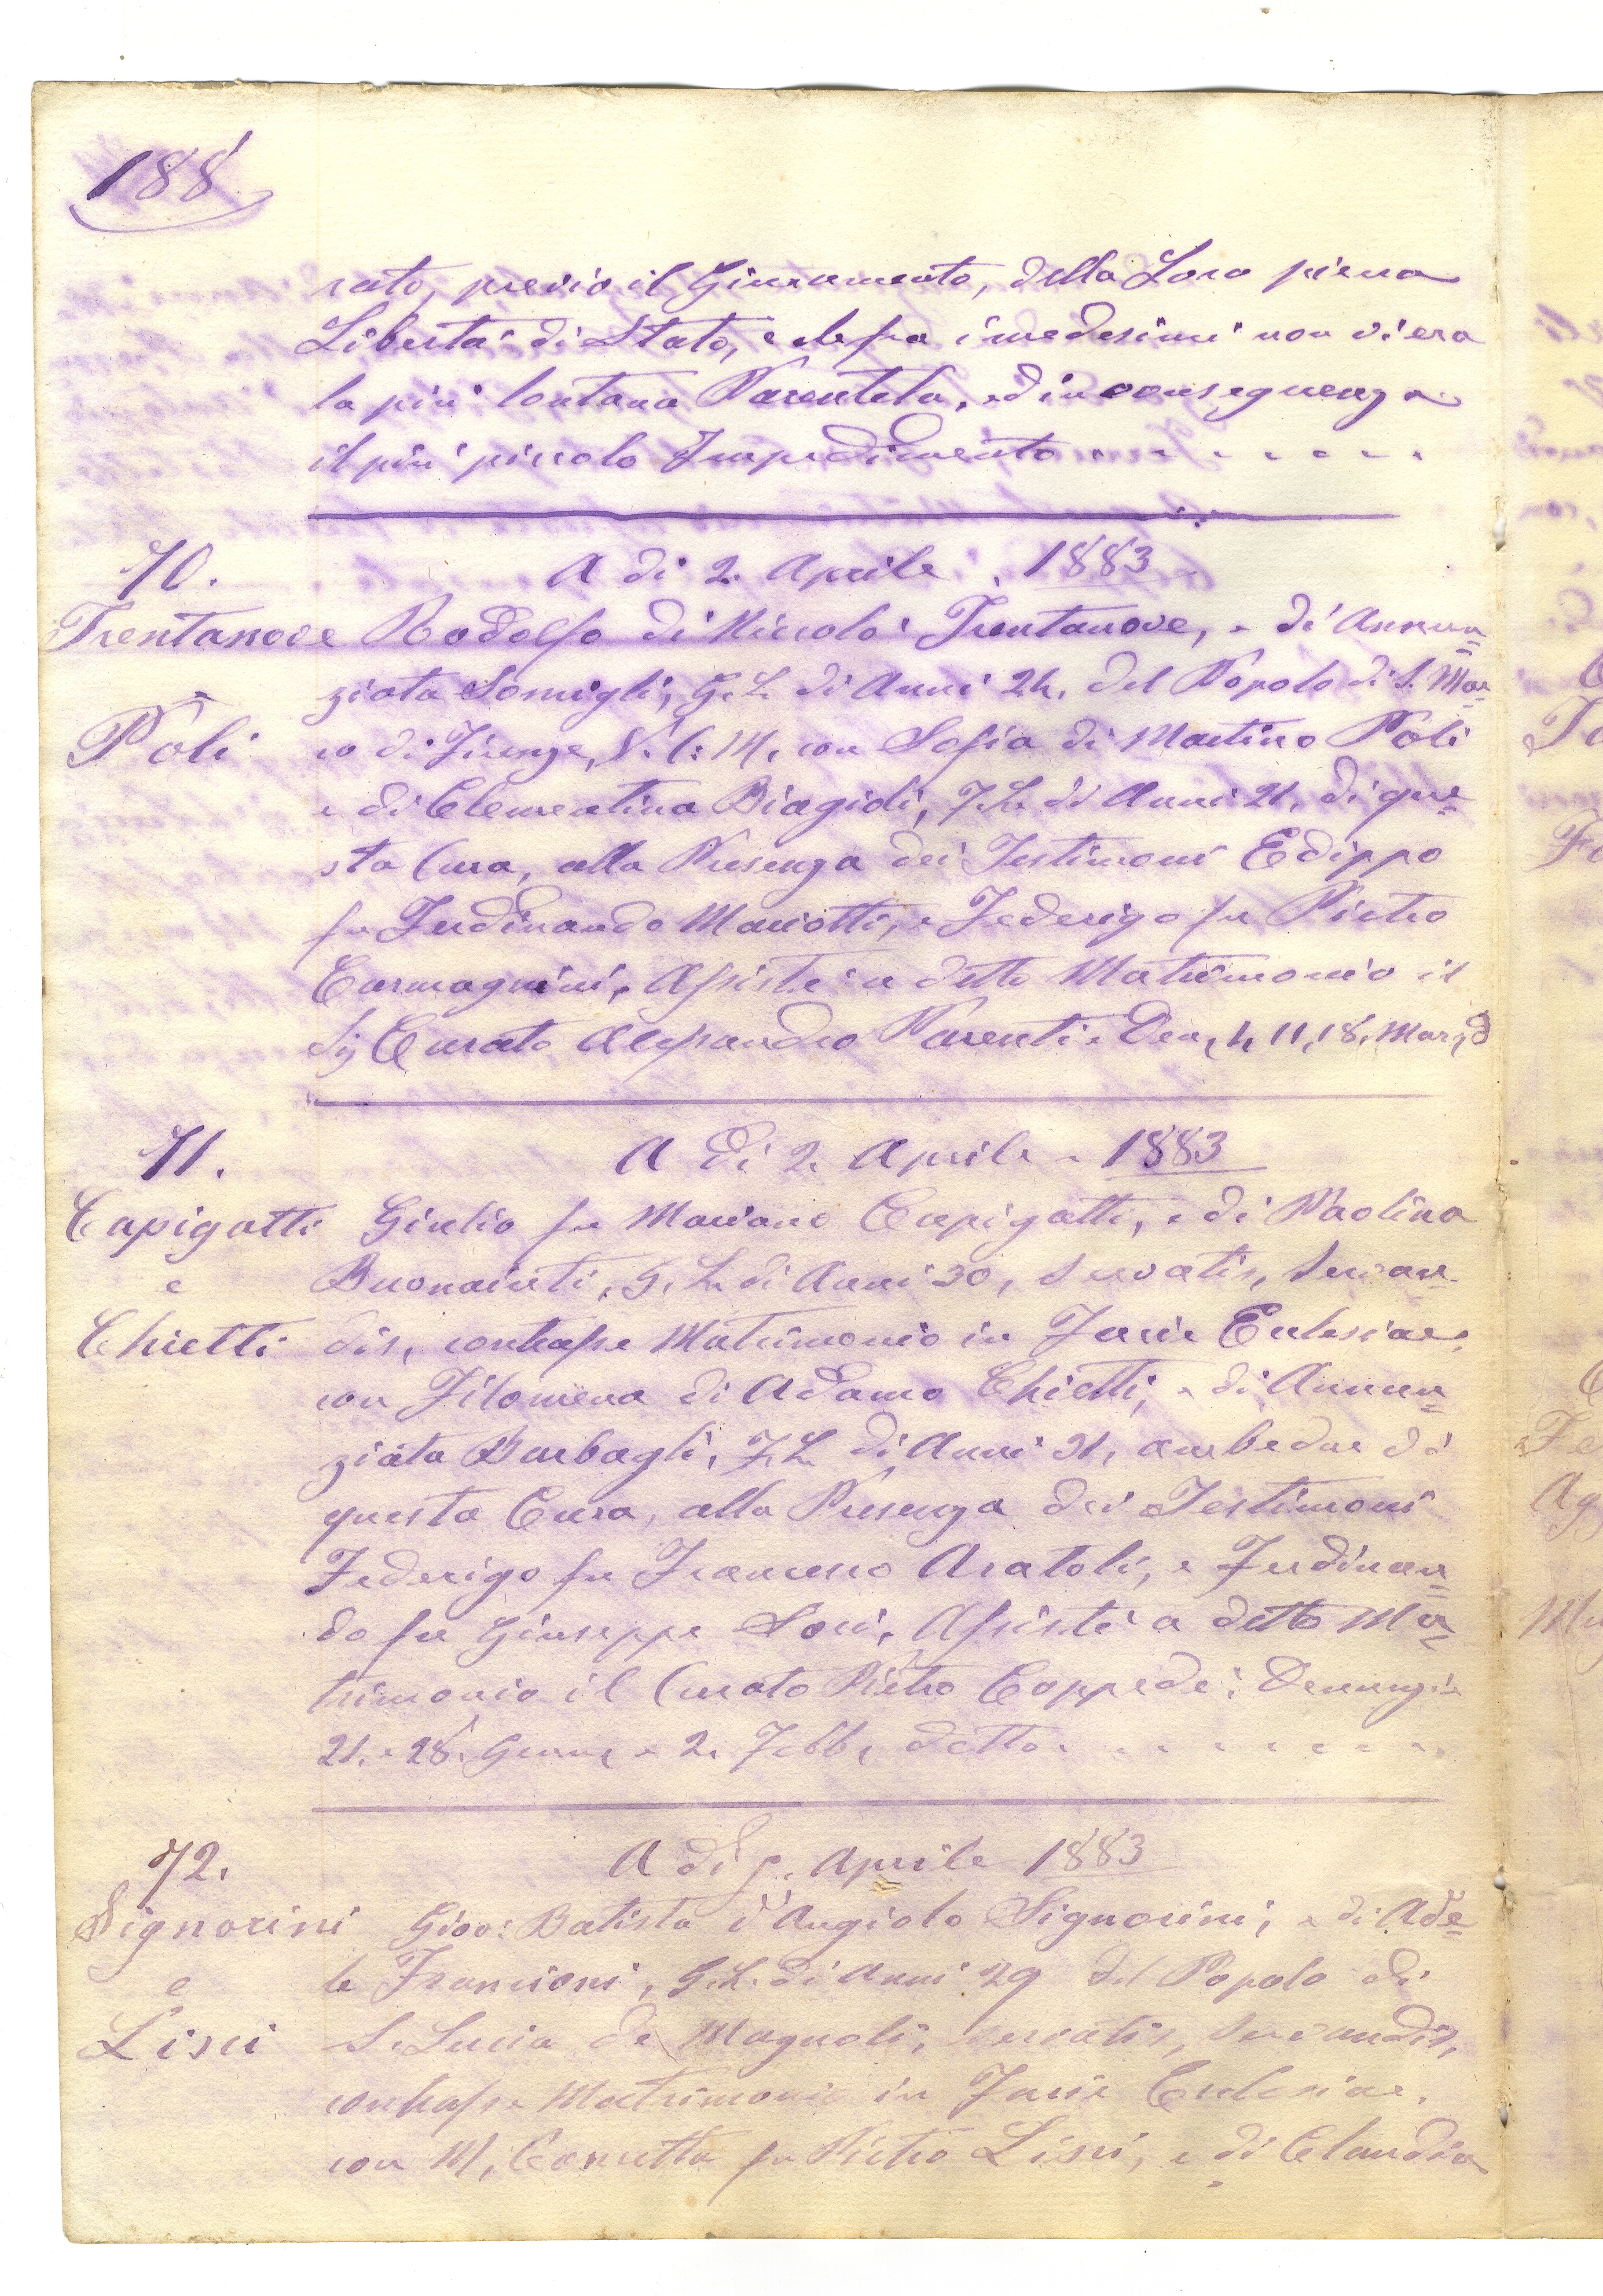 188
rato, previo il Giuramento, della Loro piena
Libertà di Stato, e che fra i medesimi non vi era
la più lontana Parentela, ed in conseguenza
il più piccolo Impedimento
70. A dì 2. Aprile 1883
Trentanove Rodolfo di Niccolò Trentanove, e di Annun=
ziata Somigli, G. L. di Anni 24, del Popolo di S. Mar=
e
Poli co di Firenze, S. C: M. con Sofia di Martino Poli
e di Clementina Biagioli, F. L. di Anni 21, di que=
sta Cura, alla Presenza dei Testimoni Edippo
fu Ferdinando Mariotti, e Federigo fu Pietro
Carmagnini, Assistè a detto Matrimonio il
Sig Curato Alessandro Parenti. Den, 4, 11, 18, Mar, d
71. A Dì 2. Aprile 1883
Capigatti Giulio fu Mariano Capigatti, e di Paolina
e Buonaiuti, G. L. di Anni 30, Servatis, Servan=
Chietti dis, contrasse Matrimonio in Facie Eclesiae,
con Filomena di Adamo Chietti, e di Annun=
ziata Burbagli, F. L. di Anni 21, ambedue di
questa Cura, alla Presenza dei Testimoni
Federigo fu Francesco Aratoli, e Ferdinan=
do fu Giuseppe Soci, Assistè a detto Ma=
trimonio il Curato Pietro Coppedè; Denunzie
21. e 28. Genn, e 2. Febb, detto
72. A dì 5. Aprile 1883
Signorini Giov: Batista d'Angiolo Signorini, e di Ade=
e le Francioni, G. L. di Anni 29 del Popolo di
Lisci S. Lucia de Magnoli, servatis, servandis,
contrasse Matrimonio in Facie Eclesiae,
con M, Concetta fu Pietro Lisci, e di Claudia